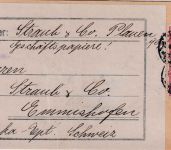 er: Straub & Co. Plauen
Geschäftspapiere!
rren
Straub & Co.
Emmishofen
Schweiz